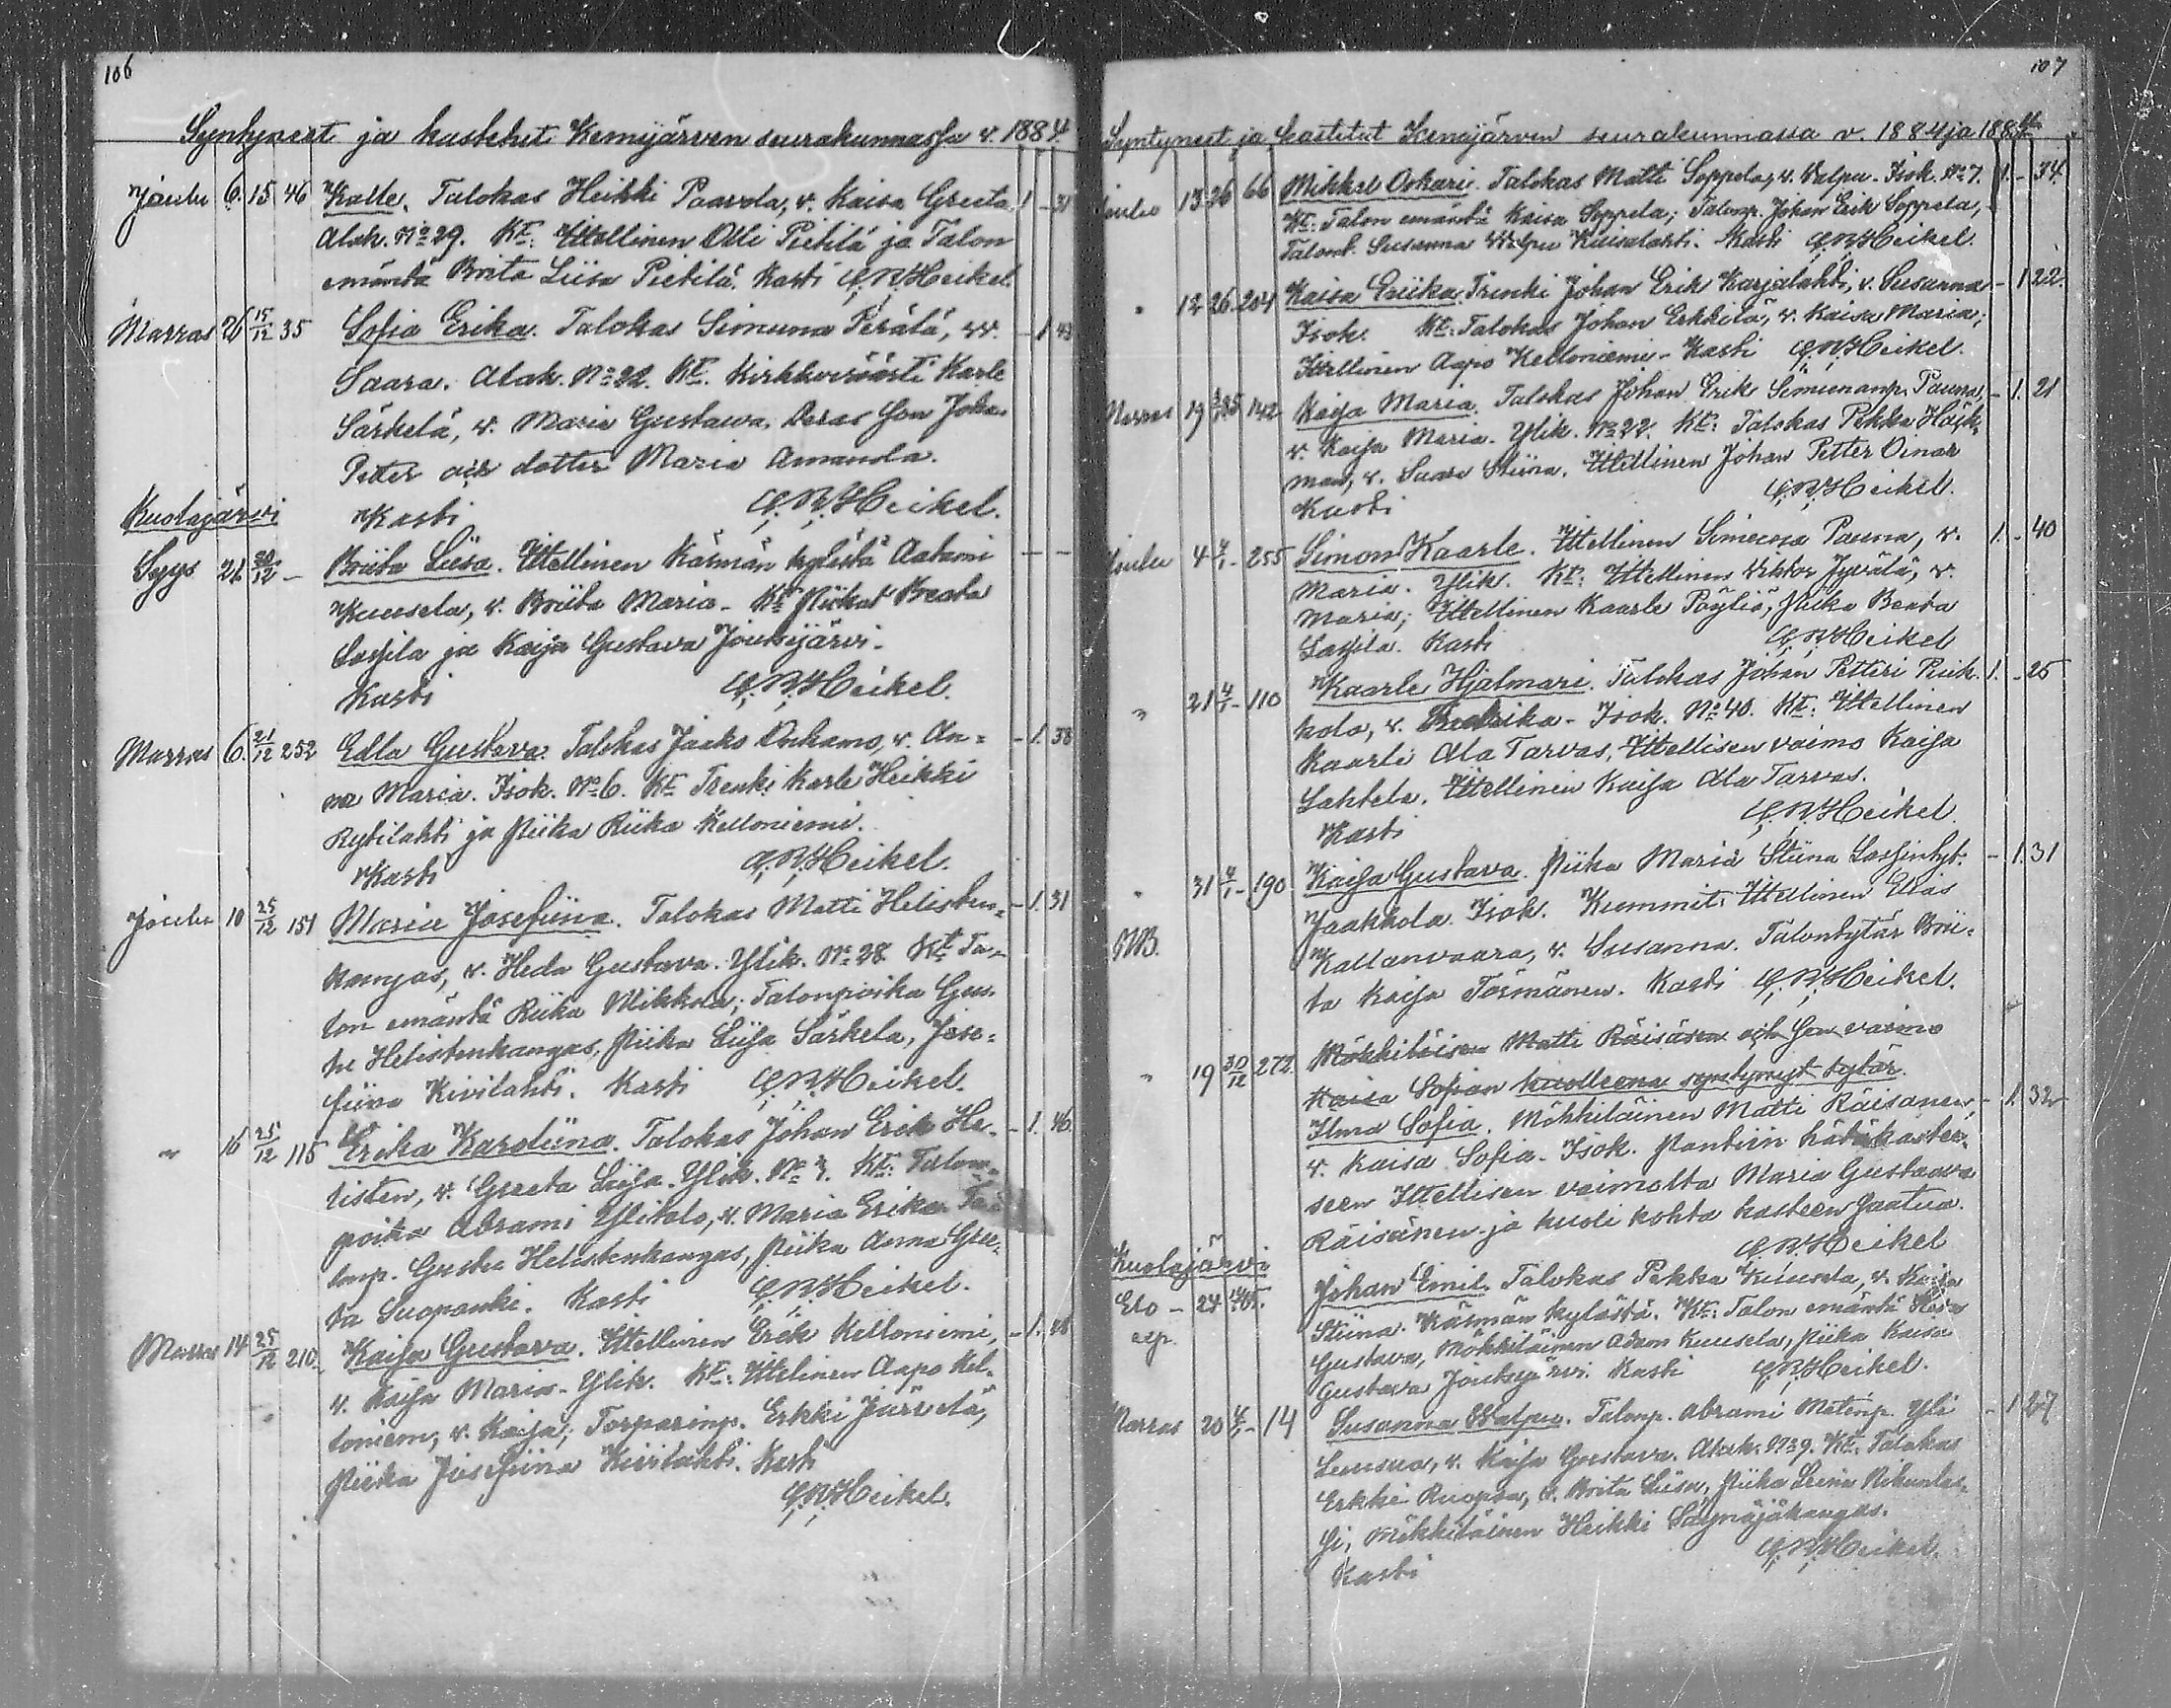 106
Syntyneet ja kastetut Kemijärven seurakunnassa v. 1884
Joulu 6. 15 46 Kalle. Talokas Heikki Paavola, v. Kaisa Greeta 1 - 31
Alak. No 29. Kt: Ittellinen Olli Pietilä ja Talon
emäntä Brita Liisa Pietilä. Kasti C. R. Heikel.
Marras 26 15/12 35 Sofia Erika. Talokas Simuna Perälä, v.
Saara. Alak. No 22. Kt. Kirkkoväärti Karle
Särkelä, v. Maria Gustawa, deras son Johan
Petter och dotter Maria Amanda.
Kasti C. R. Heikel.
Kuolajärvi
Syys 21 20/12 - Briita Liisa. Ittellinen Käsmän kylästä Aatami - -
Kuusela, v. Briita Maria - Kt Piikat Beata
Lassila ja Kaija Gustava Joutsijärvi.
Kasti C. R. Heikel.
Marras 6. 21/12 252 Edla Gustava. Talokas Jaako Onkamo, v. An- - 1. 38
na Maria. Isok. No 6. Kt Trenki Karle Heikki
Rytilahti ja Piika Riika Kelloniemi.
Kasti C. R. Heikel.
Joulu 10 25/12 151 Maria Josefiina. Talokas Matti Helisten- - 1. 31
kangas, v. Heda Gustava. Ylik. No 28 Kt Ta-
lon emäntä Riika Mikkola; Talonpoika Gus-
tu Helistenkangas, Piika Liisa Särkela, Jose-
fiina Kivilahti. Kasti C. R. Heikel.
" 16 25/12 115 Erika Karoliina. Talokas Johan Erik He- - 1. 46
listen, v. Greeta Liisa. Ylik. No 3. Kt: Talon-
poika Abrami Ylitalo, v. Maria Erika
lonp. Gustu Helistenkangas, Piika Anna Gree-
ta Suopanki. Kasti C. R. Heikel.
Marras 14 25/12 210 Kaisa Gustava. Ittellinen Erik Kelloniemi, - 1.
v. Kaisa Maria - Ylik. Kt: Ittelinen Aapo Kel-
loniem, v. Kaija; Torparinp. Erkki
Piika Josefiina Kivilahti. Kasti
C. R. Heikel.
107
Syntyneet ja kastetut Kemijärven seurakunnassa v. 1884 ja 188
Joulu 13 26 66 Mikkel Oskari. Talokas Matti Soppela, v. Valpu - Isok. No 7. 1. - 34
Kt: Talon emäntä Kaisa Soppela; Talonp. Johan Erik Soppela,
Talont. Susanna Walpu Kuisalahti. Kasti C. R. Heikel.
" 12 26 204 Kaisa Eriika. Trenki Johan Erik Karjalahti, v. Susanna - 1 22.
Isok. Kt: Talokas Johan Erkkilä, v. Kaisa Maria;
Ittellinen Aapo Kelloniemi - Kasti C. R. Heikel.
Marras 19 142 Kaija Maria. Talokas Johan Erik Simunanp. Pauna, - 1. 21
v. Kaija Maria. Ylik. No 22. Kt: Talokas Pekka Häik-
man, v. Saara Stiina. Ittellinen Johan Petter Oinas
Kasti C. R. Heikel.
Joulu 4 4/1 - 255 Simon Kaarle. Ittellinen Simuna Pauna, v. 1. - 40
Maria. Ylik. Kt: Ittellinen Viktor Jyvälä, v.
Maria; Ittellinen Kaarle Pöyliö, Piika Beata
Lassila. Kasti C. R. Heikel
" 21 4/1 - 110 Kaarle Hjalmari. Talokas Johan Petteri Puik- 1. - 25
kola, v. Fredrika - Isok. No 40. Kt: Ittellinen
Kaarle Ala Tarvas, Ittellisen vaimo Kaija
Lahtela. Ittellinen Kaisa Ala Tarvas.
Kasti C. R. Heikel.
" 31 4/1 - 190 Kaija Gustava. Piika Maria Stiina Lassintyt. - 1. 31
Jaakkola. Isok. Kummit: Ittellinen Elias
NB. Kallanvaara, v. Susanna. Talontytär Brii-
ta Kaija Törmänen. Kasti C. R. Heikel.
" 19 30/12 272. Mökkiläisen Matti Räisäsen och hon vaimo
Kaisa Sofian kuolleena syntynyt tytär.
Ilma Sofia. Mökkiläinen Matti Räisanen, - 1. 32
v. Kaisa Sofia - Isok. Pantiin hätäkastee-
seen Ittellisen vaimolta Maria Gustaava
Räisänen ja kuoli kohta kasteen saatua.
C. R. Heikel
Kuolajärvi
Elo - 24 Johan Emil. Talokas Pekka Kuusela, v. Kaisa
Stiina. Käsmän kylästä. Kt: Talon emäntä Heda
Gustava, Mökkiläinen Adam Kuusela, Piika Kaisa
Gustava Joutsijärvi. Kasti C. R. Heikel.
Marras 20 4/1 - 14 Susanna Walpu. Talonp. Abrami Matinp. Yli - 1 27
Luusua, v. Kaisa Gustava. Alak. No 9. Kt: Talokas
Erkki Ruopsa, v. Brita Liisa, Piika Leena
si, Mökkiläinen Heikki Säynäjäkangas.
Kasti C. R. Heikel.